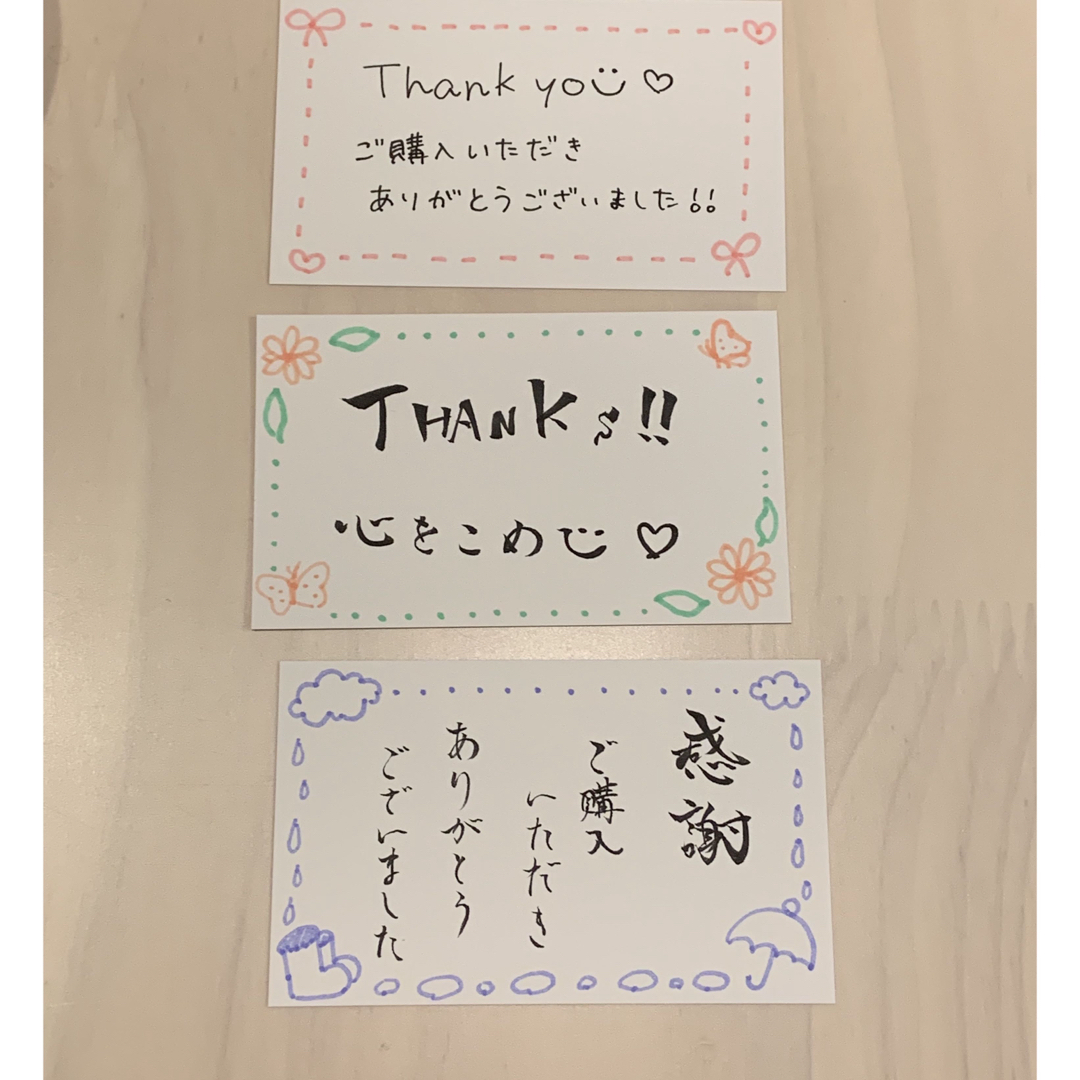 Thank you ♡
ご購入いただき
ありがとうございました!!
THANKs!!
心をこめて ♡
感謝
ご購入
いただき
ありがとう
ございました